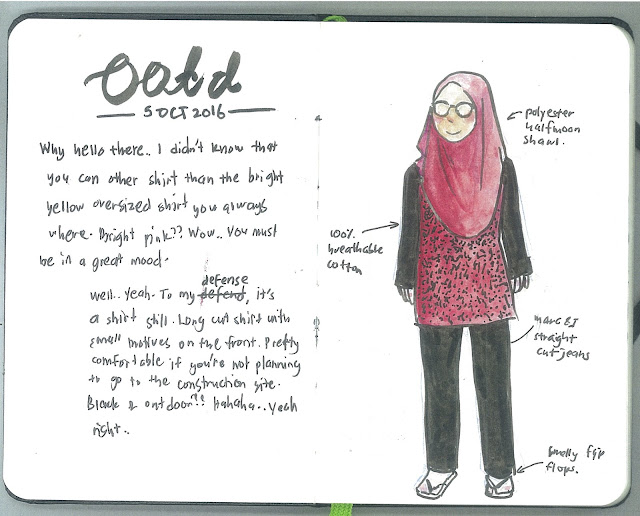 Ootd
5 OCT 2016
Why hello there.. I didn't know that
you can other shirt than the bright
yellow oversized shirt you always
where. Bright pink?? Wow.. You must
be in a great mood.
defense
well.. Yeah. To my defend, it's
a shirt still. Long cut shirt with
small motives on the front. Pretty
comfortable if you're not planning
to go to the construction site.
Black & outdoor?? Hahaha.. Yeah
right..
polyester
halfmoon
shawl.
100%
breathable
cotton
straight
cut jeans
flip
flops.